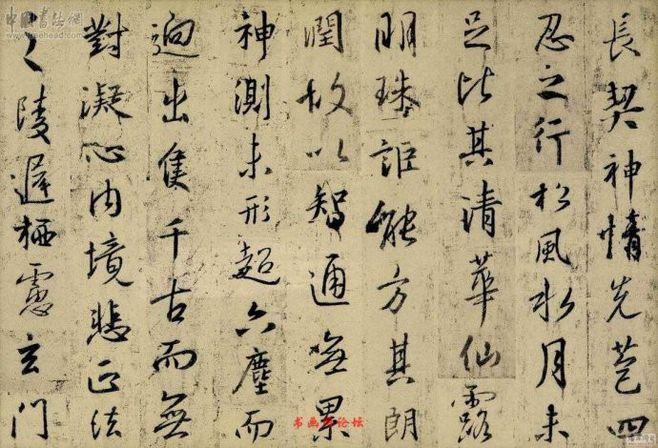 长契神情先苞四
忍之行松风水月未
足比其清華仙露
明珠詎能方其朗
潤故以智通無累
神測未形超六塵而
迥出隻千古而無
對凝心内境悲正法
之陵遲栖慮玄門
中国书法网
书画家论坛